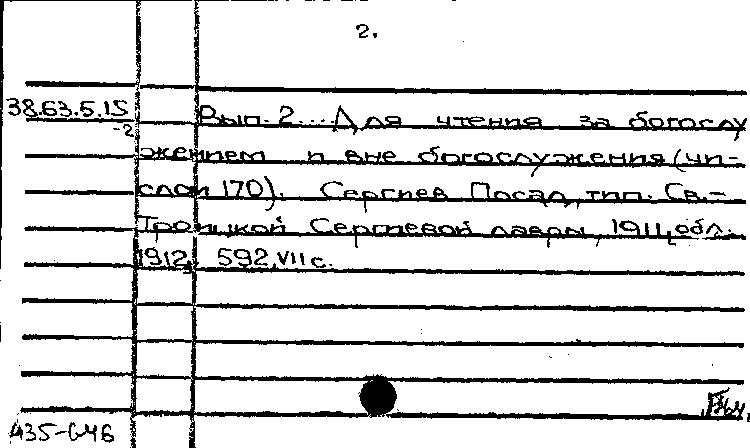 2.
38.63.5.15
-2
Вып. 2....Для чтения за богослу
жением и вне богослужения (чи-
слом 170). Сергиев Посад, тип. Св.-
Троицкой Сергиевой лавры, 1911, обл.
1912. 592, VII с.
435-646